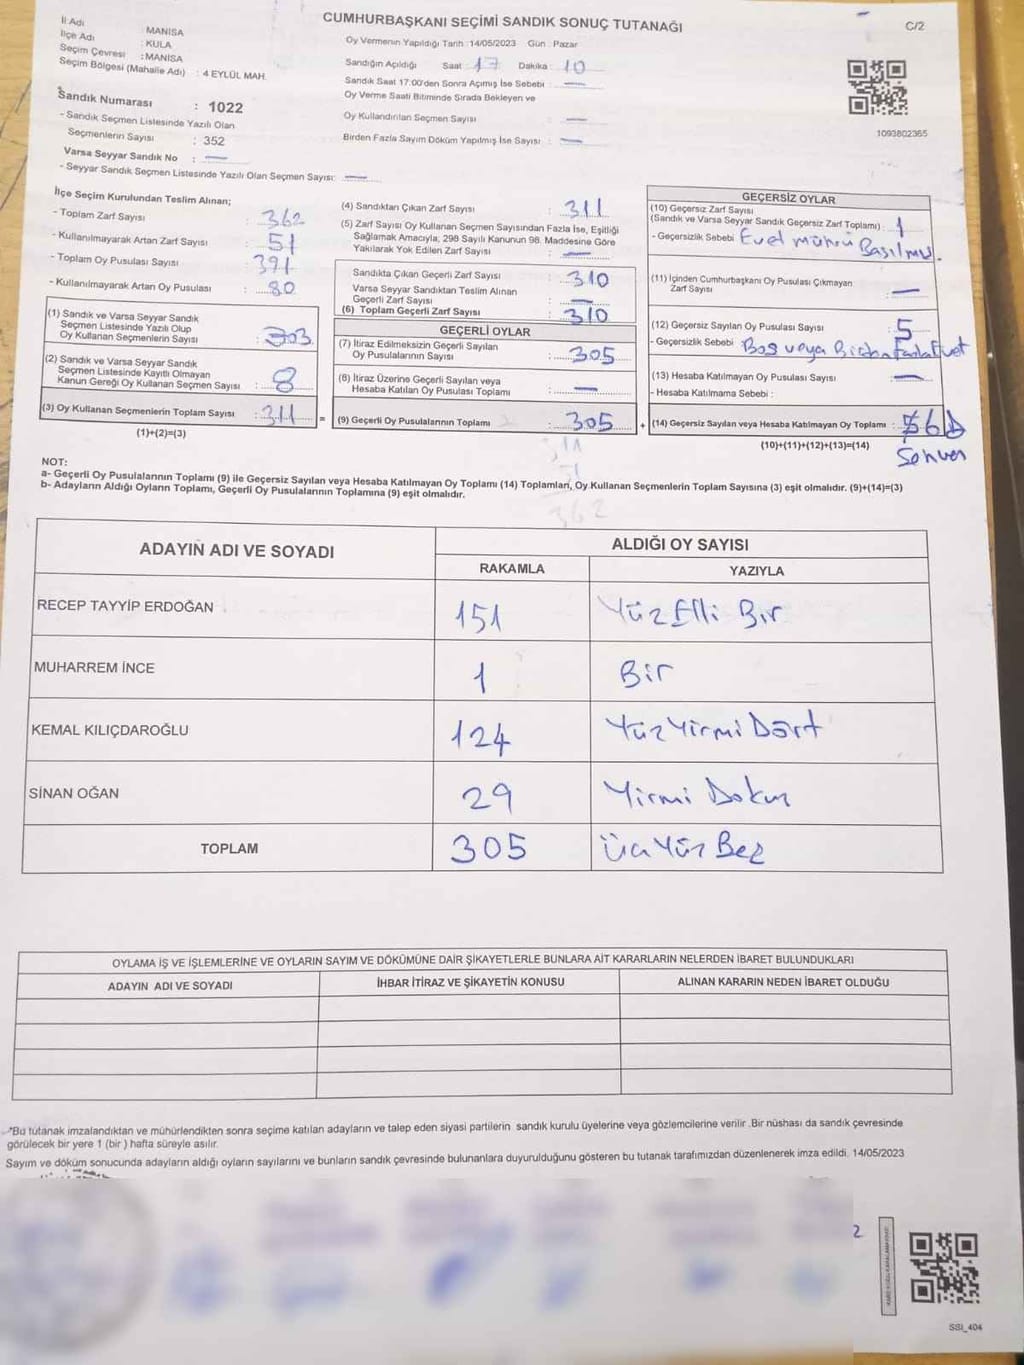 CUMHURBAŞKANI SEÇİMİ SANDIK SONUÇ TUTANAĞI
C/2
İl Adı : MANİSA
İlçe Adı : KULA
Seçim Çevresi : MANİSA
Seçim Bölgesi (Mahalle Adı) : 4 EYLÜL MAH.
Sandık Numarası : 1022
- Sandık Seçmen Listesinde Yazılı Olan
Seçmenlerin Sayısı : 352
Varsa Seyyar Sandık No : —
- Seyyar Sandık Seçmen Listesinde Yazılı Olan Seçmen Sayısı: —
Oy Vermenin Yapıldığı Tarih :14/05/2023 Gün : Pazar
Sandığın Açıldığı Saat : 17 Dakika : 10
Sandık Saat 17:00'den Sonra Açımış İse Sebebi : —
Oy Verme Saati Bitiminde Sırada Bekleyen ve
Oy Kullandırılan Seçmen Sayısı : —
Birden Fazla Sayım Döküm Yapılmış İse Sayısı : —
1093802365
İlçe Seçim Kurulundan Teslim Alınan;
- Toplam Zarf Sayısı : 362
- Kullanılmayarak Artan Zarf Sayısı : 51
- Toplam Oy Pusulası Sayısı : 391
- Kullanılmayarak Artan Oy Pusulası : 80
(1) Sandık ve Varsa Seyyar Sandık
Seçmen Listesinde Yazılı Olup
Oy Kullanan Seçmenlerin Sayısı : 303
(2) Sandık ve Varsa Seyyar Sandık
Seçmen Listesinde Kayıtlı Olmayan
Kanun Gereği Oy Kullanan Seçmen Sayısı : 8
(3) Oy Kullanan Seçmenlerin Toplam Sayısı : 311 =
(1)+(2)=(3)
(4) Sandıktan Çıkan Zarf Sayısı : 311
(5) Zarf Sayısı Oy Kullanan Seçmen Sayısından Fazla İse, Eşitliği
Sağlamak Amacıyla, 298 Sayılı Kanunun 98. Maddesine Göre
Yakılarak Yok Edilen Zarf Sayısı : —
Sandıkta Çıkan Geçerli Zarf Sayısı : 310
Varsa Seyyar Sandıktan Teslim Alınan
Geçerli Zarf Sayısı : —
(6) Toplam Geçerli Zarf Sayısı : 310
GEÇERLİ OYLAR
(7) İtiraz Edilmeksizin Geçerli Sayılan
Oy Pusulalarının Sayısı : 305
(8) İtiraz Üzerine Geçerli Sayılan veya
Hesaba Katılan Oy Pusulası Toplamı : —
(9) Geçerli Oy Pusulalarının Toplamı : 305 +
311
51
362
GEÇERSİZ OYLAR
(10) Geçersiz Zarf Sayısı
(Sandık ve Varsa Seyyar Sandık Geçersiz Zarf Toplamı) : 1
- Geçersizlik Sebebi : Evet mührü Basılmış.
(11) İçinden Cumhurbaşkanı Oy Pusulası Çıkmayan
Zarf Sayısı : —
(12) Geçersiz Sayılan Oy Pusulası Sayısı : 5
- Geçersizlik Sebebi : Boş veya Birden Fazla Evet
(13) Hesaba Katılmayan Oy Pusulası Sayısı : —
- Hesaba Katılmama Sebebi :
(14) Geçersiz Sayılan veya Hesaba Katılmayan Oy Toplamı : 6
(10)+(11)+(12)+(13)=(14)
NOT:
a- Geçerli Oy Pusulalarının Toplamı (9) ile Geçersiz Sayılan veya Hesaba Katılmayan Oy Toplamı (14) Toplamları, Oy Kullanan Seçmenlerin Toplam Sayısına (3) eşit olmalıdır. (9)+(14)=(3)
b- Adayların Aldığı Oyların Toplamı, Geçerli Oy Pusulalarının Toplamına (9) eşit olmalıdır.
ADAYIN ADI VE SOYADI
ALDIĞI OY SAYISI
RAKAMLA YAZIYLA
RECEP TAYYİP ERDOĞAN 151 Yüz Elli Bir
MUHARREM İNCE 1 Bir
KEMAL KILIÇDAROĞLU 124 Yüz Yirmi Dört
SİNAN OĞAN 29 Yirmi Dokuz
TOPLAM 305 Üç Yüz Beş
OYLAMA İŞ VE İŞLEMLERİNE VE OYLARIN SAYIM VE DÖKÜMÜNE DAİR ŞİKAYETLERLE BUNLARA AİT KARARLARIN NELERDEN İBARET BULUNDUKLARI
ADAYIN ADI VE SOYADI İHBAR İTİRAZ VE ŞİKAYETİN KONUSU ALINAN KARARIN NEDEN İBARET OLDUĞU
*Bu tutanak imzalandıktan ve mühürlendikten sonra seçime katılan adayların ve talep eden siyasi partilerin sandık kurulu üyelerine veya gözlemcilerine verilir .Bir nüshası da sandık çevresinde
görülecek bir yere 1 (bir ) hafta süreyle asılır.
Sayım ve döküm sonucunda adayların aldığı oyların sayılarını ve bunların sandık çevresinde bulunanlara duyurulduğunu gösteren bu tutanak tarafımızdan düzenlenerek imza edildi. 14/05/2023
2
SSI_404